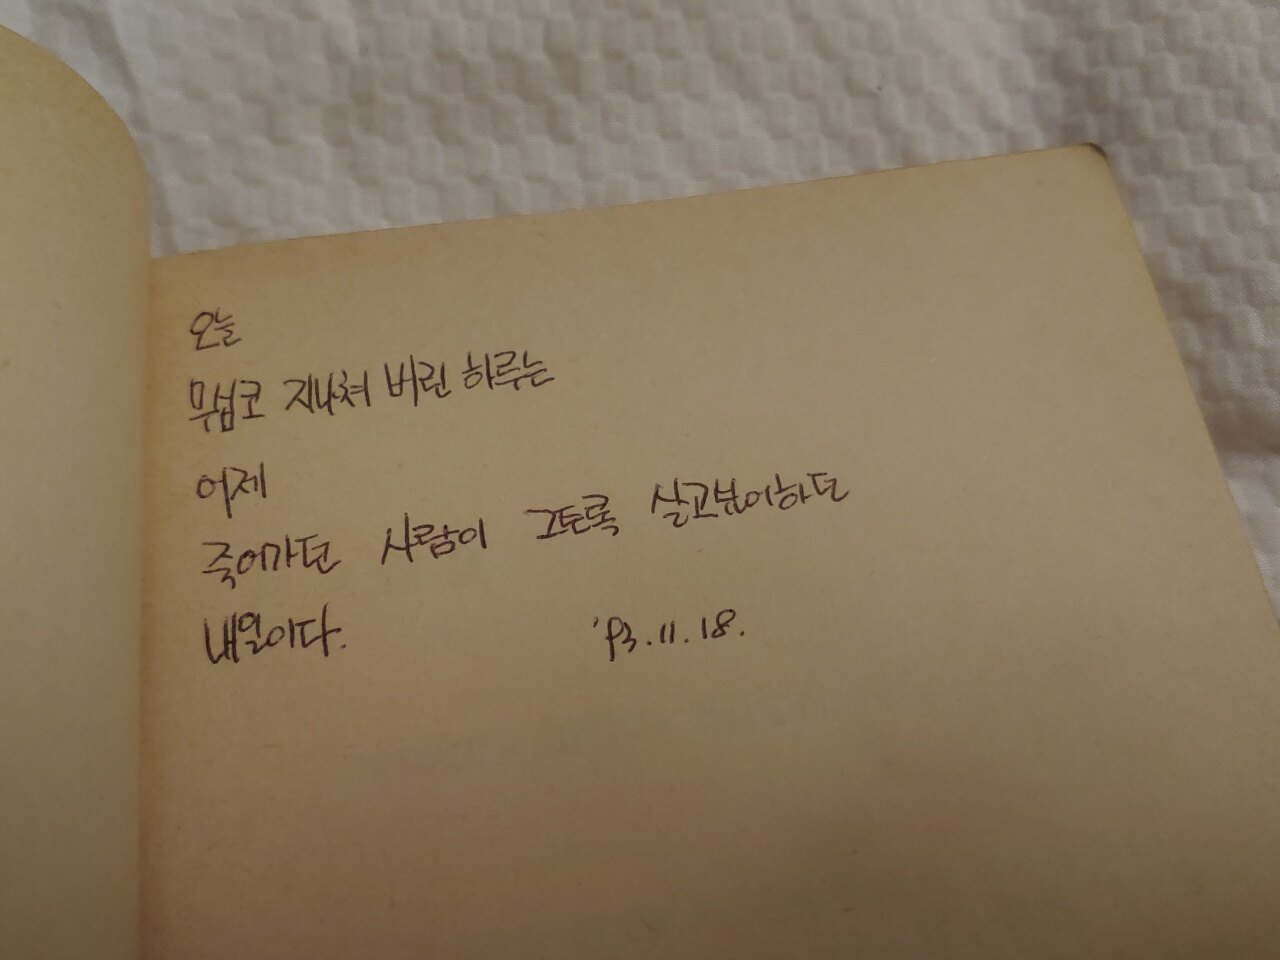 오늘
무심코 지나쳐 버린 하루는
어제
죽어가던 사람이 그토록 살고보이하던
내일이다. '93.11.18.